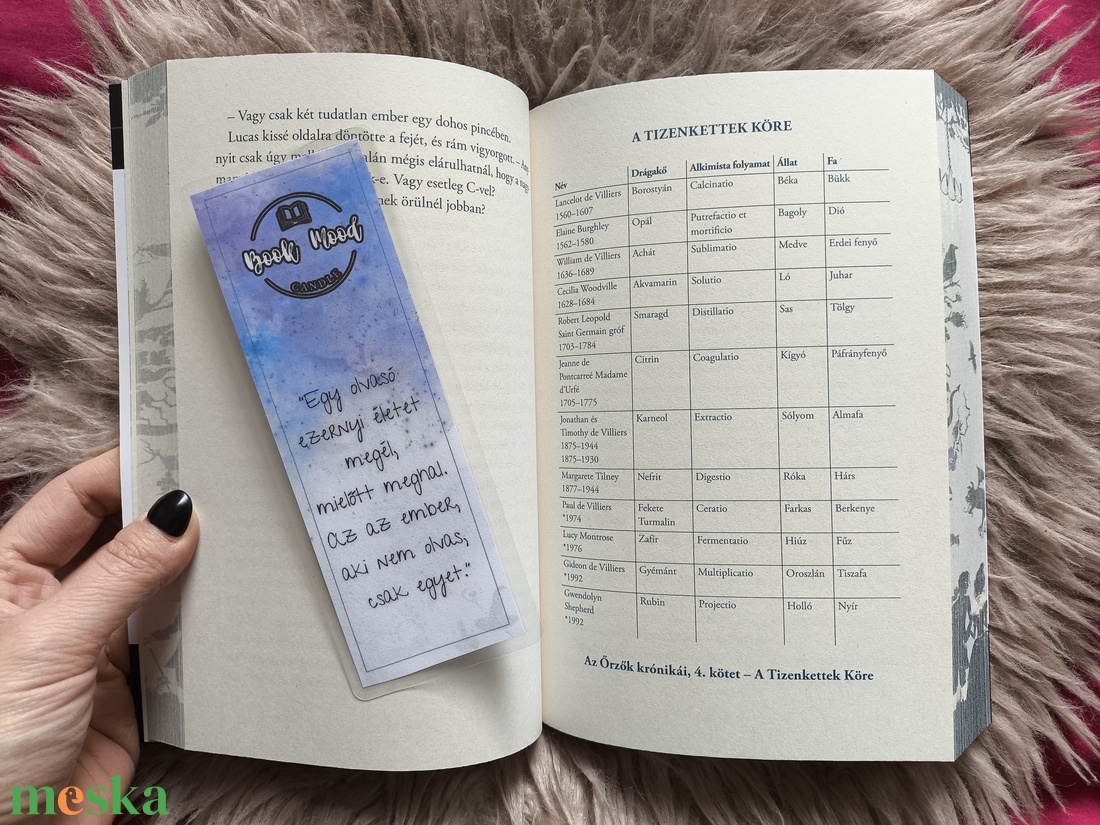 – Vagy csak két tudatlan ember egy dohos pincében.
Lucas kissé oldalra döntötte a fejét, és rám vigyorgott. –
nyit csak úgy mégis elárulhatnál, hogy a
Vagy esetleg C-vel?
örülnél jobban?
Book Mood
CANDLE
"Egy olvasó
ezernyi életet
megél,
mielőtt meghal.
az az ember,
aki nem olvas,
csak egyet."
A TIZENKETTEK KÖRE
Név Drágakő Alkimista folyamat Állat Fa
Lancelot de Villiers Borostyán Calcinatio Béka Bükk
1560–1607
Elaine Burghley Opál Putrefactio et Bagoly Dió
1562–1580 mortificio
William de Villiers Achát Sublimatio Medve Erdei fenyő
1636–1689
Cecilia Woodville Akvamarin Solutio Ló Juhar
1628–1684
Robert Leopold Smaragd Distillatio Sas Tölgy
Saint Germain gróf
1703–1784
Jeanne de Citrin Coagulatio Kígyó Páfrányfenyő
Pontcarreé Madame
d'Urfé
1705–1775
Jonathan és Karneol Extractio Sólyom Almafa
Timothy de Villiers
1875–1944
1875–1930
Margarete Tilney Nefrit Digestio Róka Hárs
1877–1944
Paul de Villiers Fekete Ceratio Farkas Berkenye
*1974 Turmalin
Lucy Montrose Zafír Fermentatio Hiúz Fűz
*1976
Gideon de Villiers Gyémánt Multiplicatio Oroszlán Tiszafa
*1992
Gwendolyn Rubin Projectio Holló Nyír
Shepherd
*1992
Az Őrzők krónikái, 4. kötet – A Tizenkettek Köre
meska